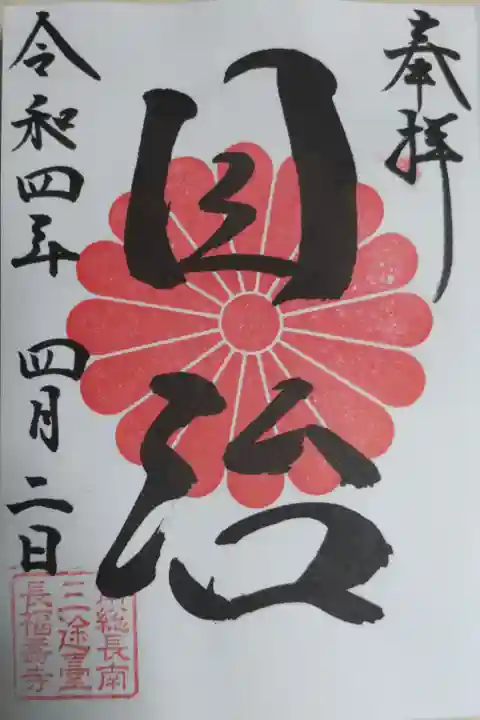 奉拝
治
令和四年 四月二日
総長南
三途臺
長福壽寺